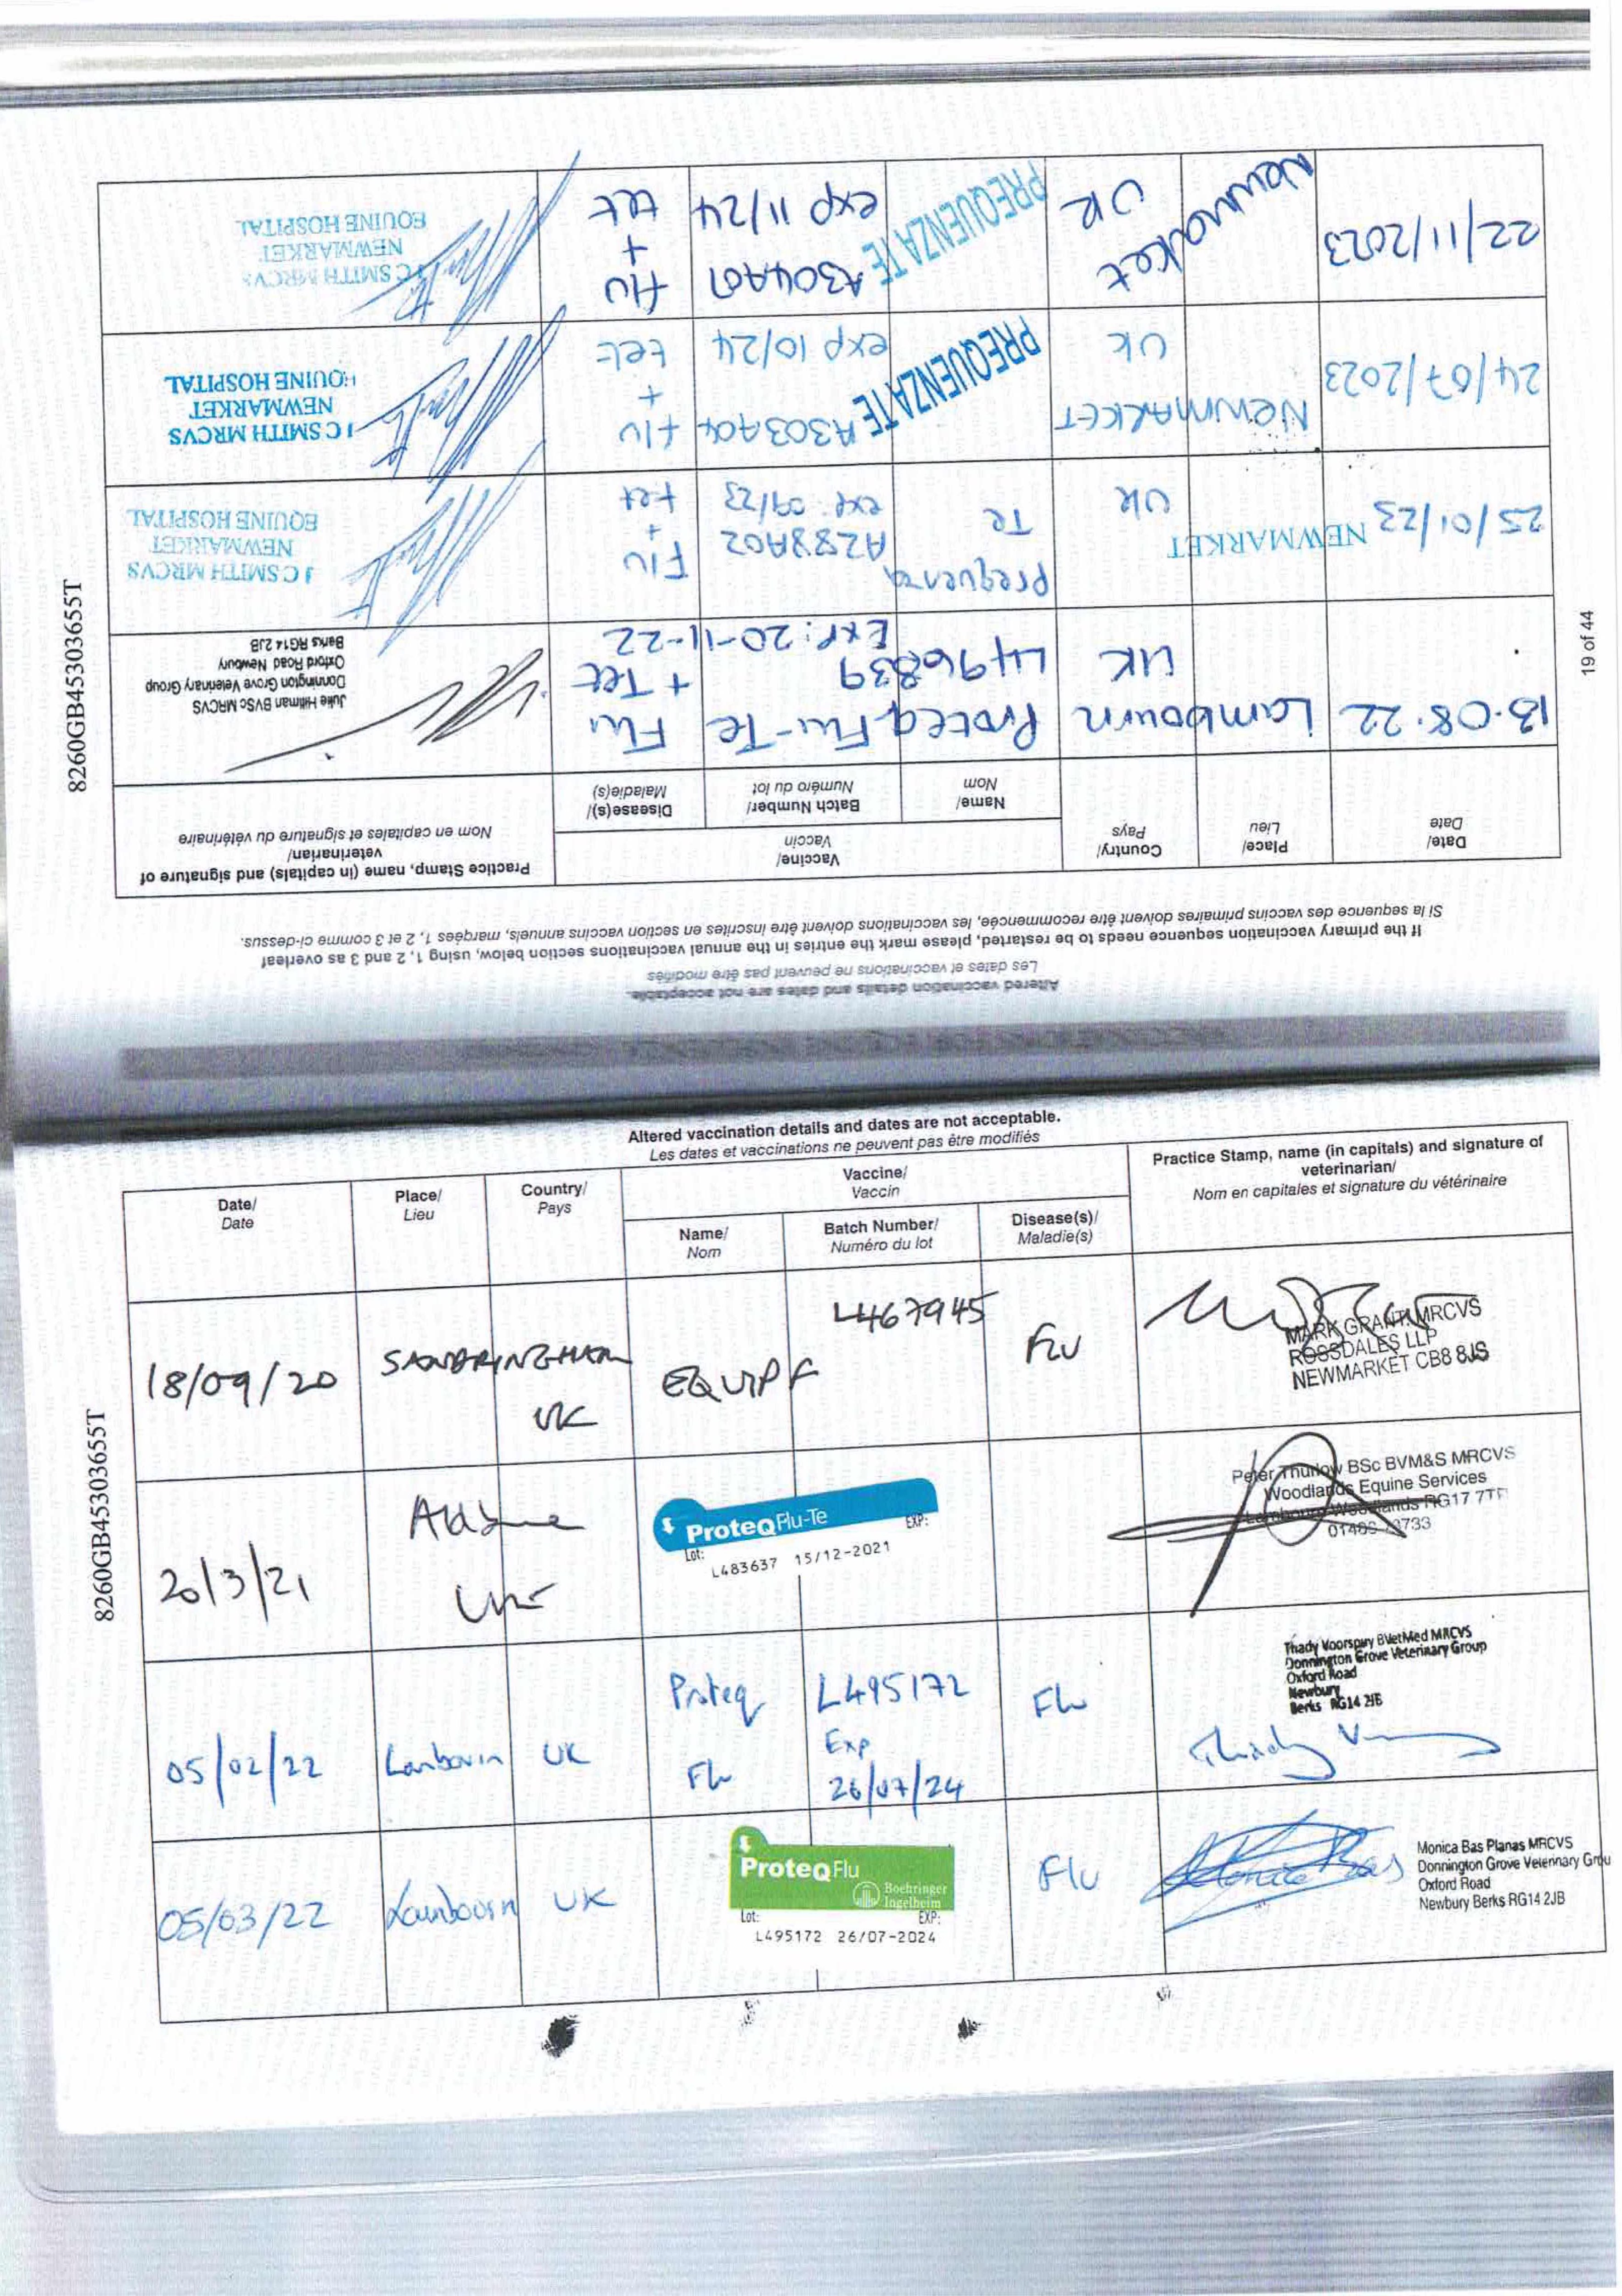 8260GB45303655T
19 of 44
Altered vaccination details and dates are not acceptable.
Les dates et vaccinations ne peuvent pas être modifiés
If the primary vaccination sequence needs to be restarted, please mark the entries in the annual vaccinations section below, using 1, 2 and 3 as overleaf
Si la sequence des vaccins primaires doivent être recommencée, les vaccinations doivent être inscrites en section vaccins annuels, marqées 1, 2 et 3 comme ci-dessus.
Date/
Date
Place/
Lieu
Country/
Pays
Vaccine/
Vaccin
Name/
Nom
Batch Number/
Numéro du lot
Disease(s)/
Maladie(s)
Practice Stamp, name (in capitals) and signature of
veterinarian/
Nom en capitales et signature du vétérinaire
13.08.22 Lambourn UK ProteqFlu-Te L496839 Exp: 20-11-22 Flu + Tet
Julie Hillman BVSc MRCVS
Donnington Grove Veterinary Group
Oxford Road Newbury
Berks RG14 2JB
25/01/23 NEWMARKET UK Prequenza Te A288A02 exp: 09/23 Flu + tet
J C SMITH MRCVS
NEWMARKET
EQUINE HOSPITAL
24/07/2023 NEWMARKET UK PREQUENZA TE A303A04 exp 10/24 flu + tet
J C SMITH MRCVS
NEWMARKET
EQUINE HOSPITAL
22/11/2023 Newmarket UK PREQUENZA TE A304A01 exp 11/24 flu + tet
J C SMITH MRCVS
NEWMARKET
EQUINE HOSPITAL
Altered vaccination details and dates are not acceptable.
Les dates et vaccinations ne peuvent pas être modifiés
8260GB45303655T
Date/
Date
Place/
Lieu
Country/
Pays
Vaccine/
Vaccin
Name/
Nom
Batch Number/
Numéro du lot
Disease(s)/
Maladie(s)
Practice Stamp, name (in capitals) and signature of
veterinarian/
Nom en capitales et signature du vétérinaire
18/09/20 SANDRINGHAM UK EQUIP F L467945 FLU
MARK GRANT MRCVS
ROSSDALES LLP
NEWMARKET CB8 8JS
20/3/21
ProteqFlu-Te
Lot: EXP:
L483637 15/12-2021
Peter Thurlow BSc BVM&S MRCVS
Woodlands Equine Services
Lambourn Woodlands RG17 7TF
05/02/22 Lambourn UK Proteq Flu L495172 Exp 26/07/24 Flu
Thady Voorspuy BVetMed MRCVS
Donnington Grove Veterinary Group
Oxford Road
Newbury
Berks RG14 2JB
05/03/22 Lambourn UK
ProteqFlu
Boehringer
Ingelheim
Lot: EXP:
L495172 26/07-2024
Flu
Monica Bas Planas MRCVS
Donnington Grove Veterinary Grou
Oxford Road
Newbury Berks RG14 2JB